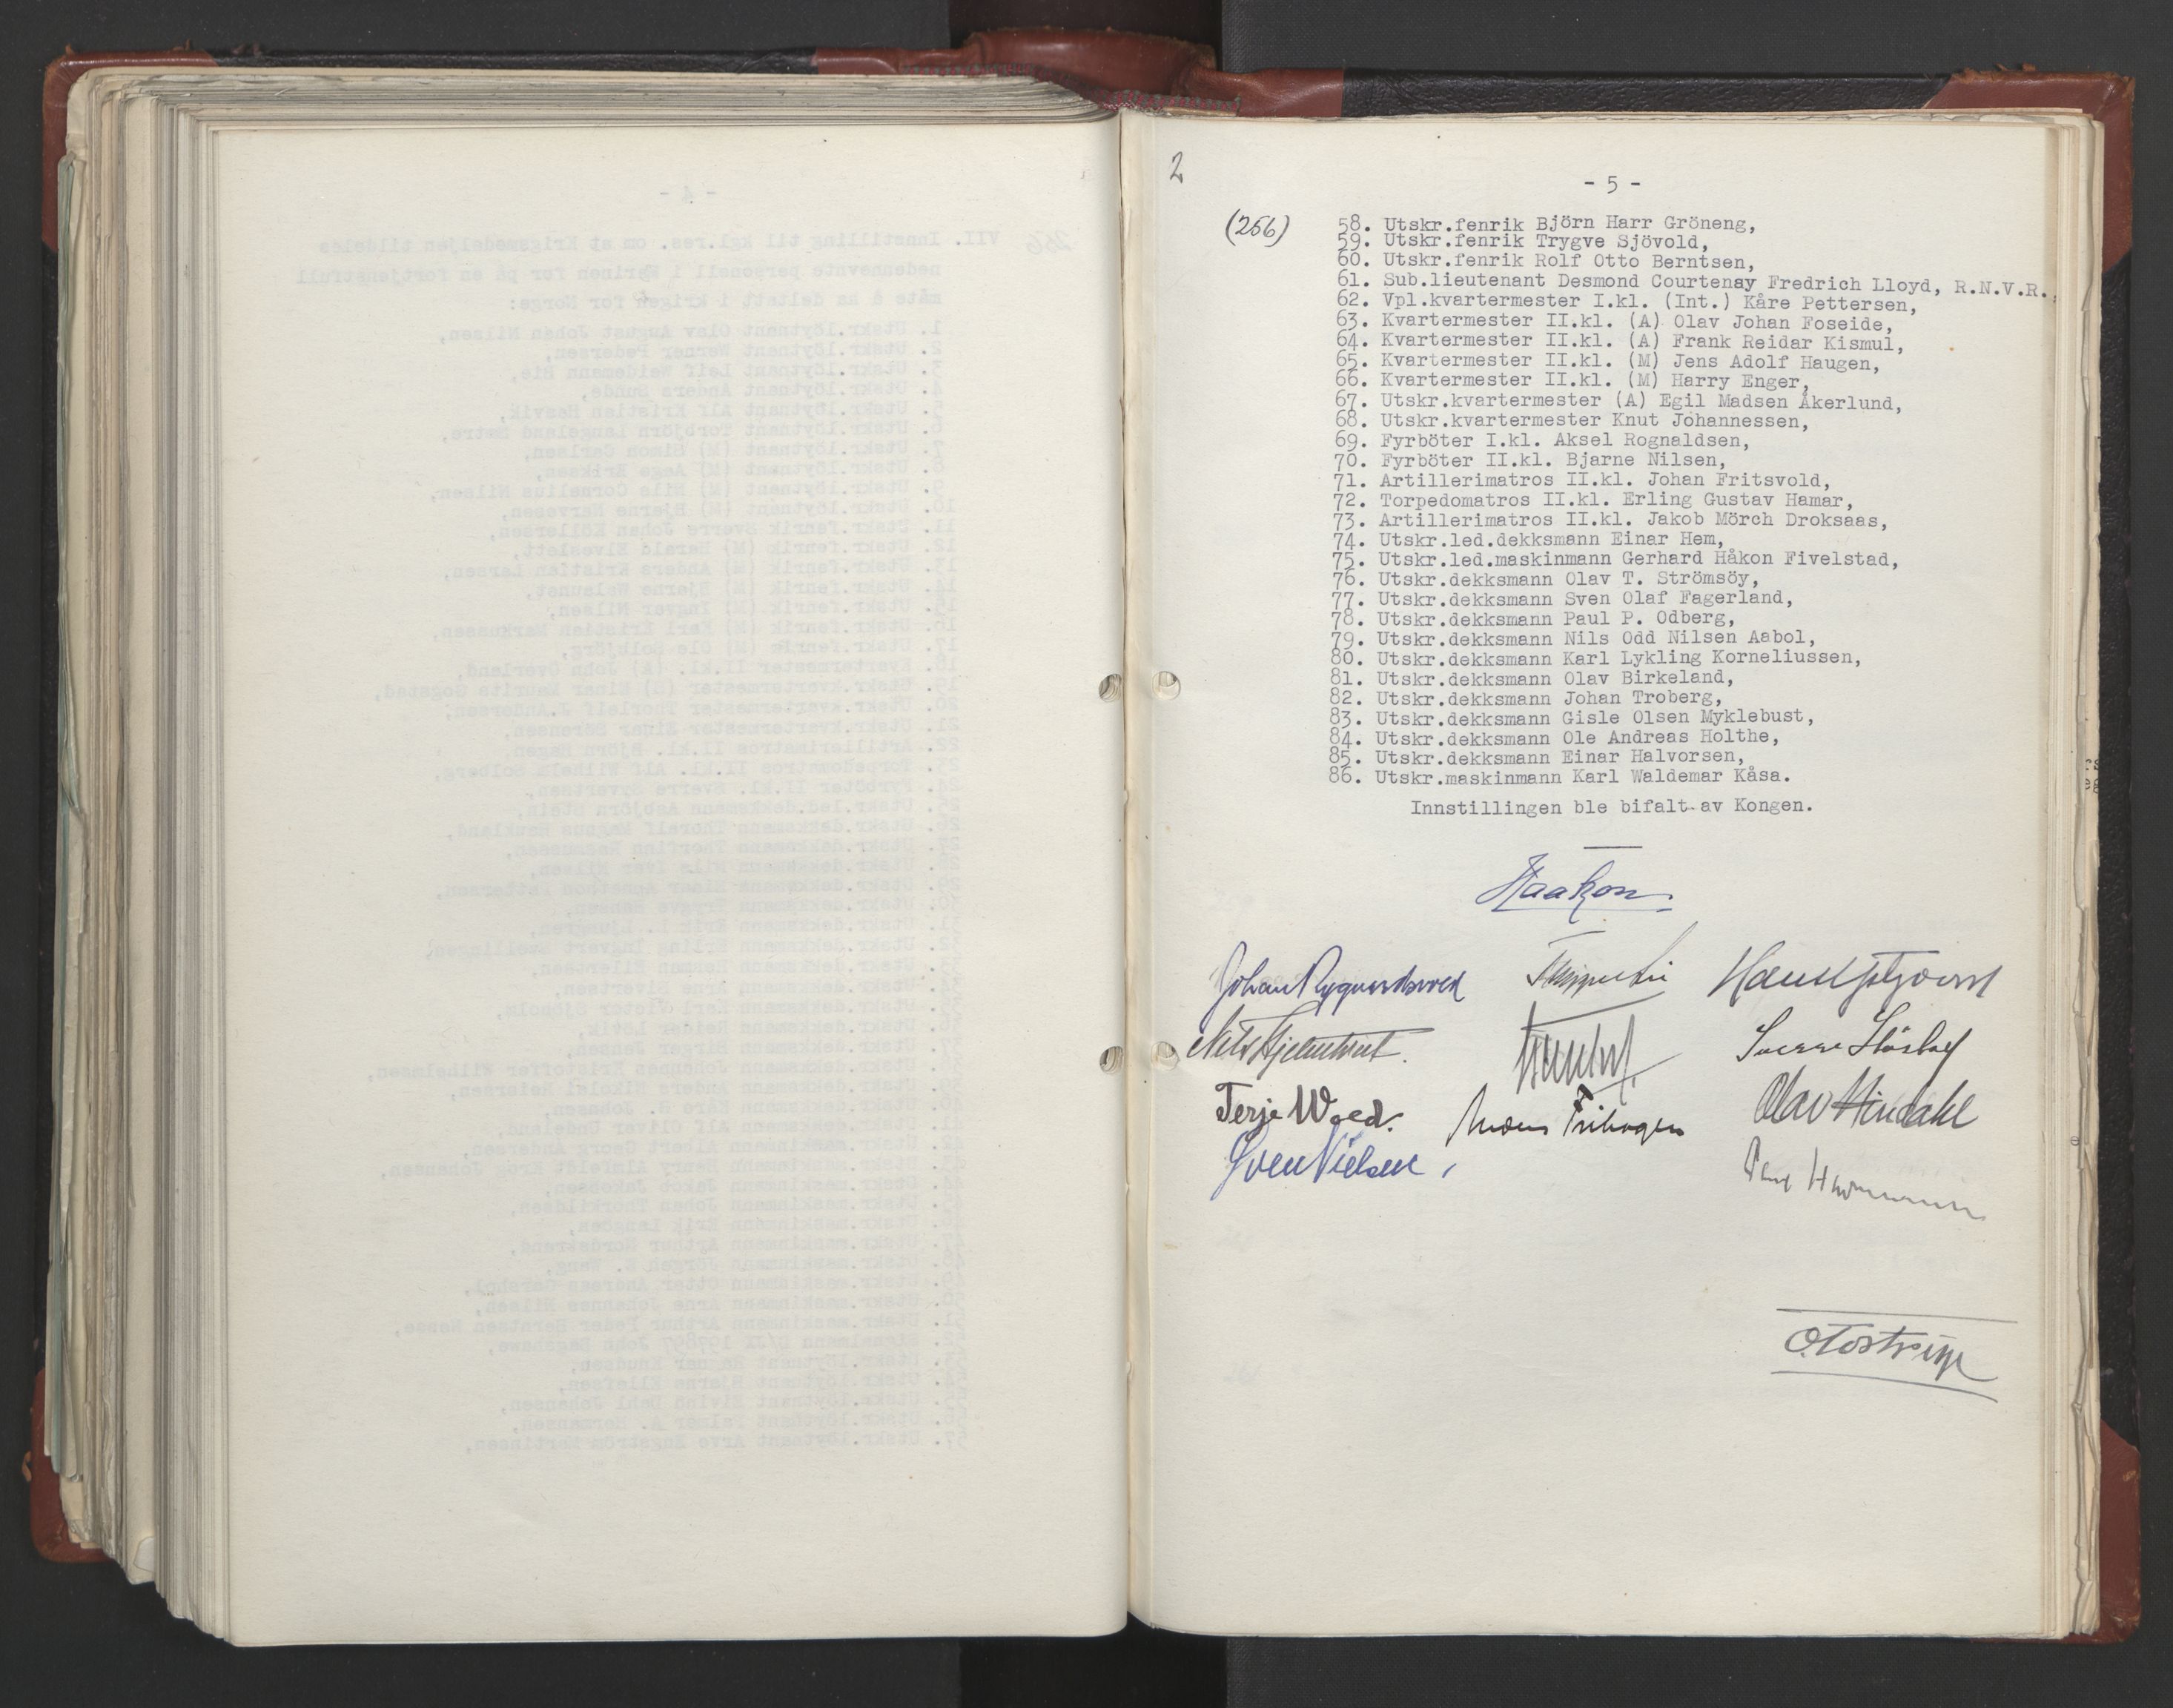 2
- 5 -
(256)
58. Utskr.fenrik Björn Harr Gröneng,
59. Utskr.fenrik Trygve Sjövold,
60. Utskr.fenrik Rolf Otto Berntsen,
61. Sub.lieutenant Desmond Courtenay Fredrich Lloyd, R.N.V.R.,
62. Vpl.kvartermester I.kl. (Int.) Kåre Pettersen,
63. Kvartermester II.kl. (A) Olav Johan Foseide,
64. Kvartermester II.kl. (A) Frank Reidar Kismul,
65. Kvartermester II.kl. (M) Jens Adolf Haugen,
66. Kvartermester II.kl. (M) Harry Enger,
67. Utskr.kvartermester (A) Egil Madsen Åkerlund,
68. Utskr.kvartermester Knut Johannessen,
69. Fyrböter I.kl. Aksel Rognaldsen,
70. Fyrböter II.kl. Bjarne Nilsen,
71. Artillerimatros II.kl. Johan Fritsvold,
72. Torpedomatros II.kl. Erling Gustav Hamar,
73. Artillerimatros II.kl. Jakob Mörch Droksaas,
74. Utskr.led.dekksmann Einar Hem,
75. Utskr.led.maskinmann Gerhard Håkon Fivelstad,
76. Utskr.dekksmann Olav T. Strömsöy,
77. Utskr.dekksmann Sven Olaf Fagerland,
78. Utskr.dekksmann Paul P. Odberg,
79. Utskr.dekksmann Nils Odd Nilsen Aabol,
80. Utskr.dekksmann Karl Lykling Korneliussen,
81. Utskr.dekksmann Olav Birkeland,
82. Utskr.dekksmann Johan Troberg,
83. Utskr.dekksmann Gisle Olsen Myklebust,
84. Utskr.dekksmann Ole Andreas Holthe,
85. Utskr.dekksmann Einar Halvorsen,
86. Utskr.maskinmann Karl Waldemar Kåsa.
Innstillingen ble bifalt av Kongen.
Haakon.
Johan Nygaardsvold Trygve Lie
Nils Hjelmtveit.
Terje Wold. Anders Frihagen Olav Hindahl
Sven Nielsen Paul Hartmann
O. Tostrup